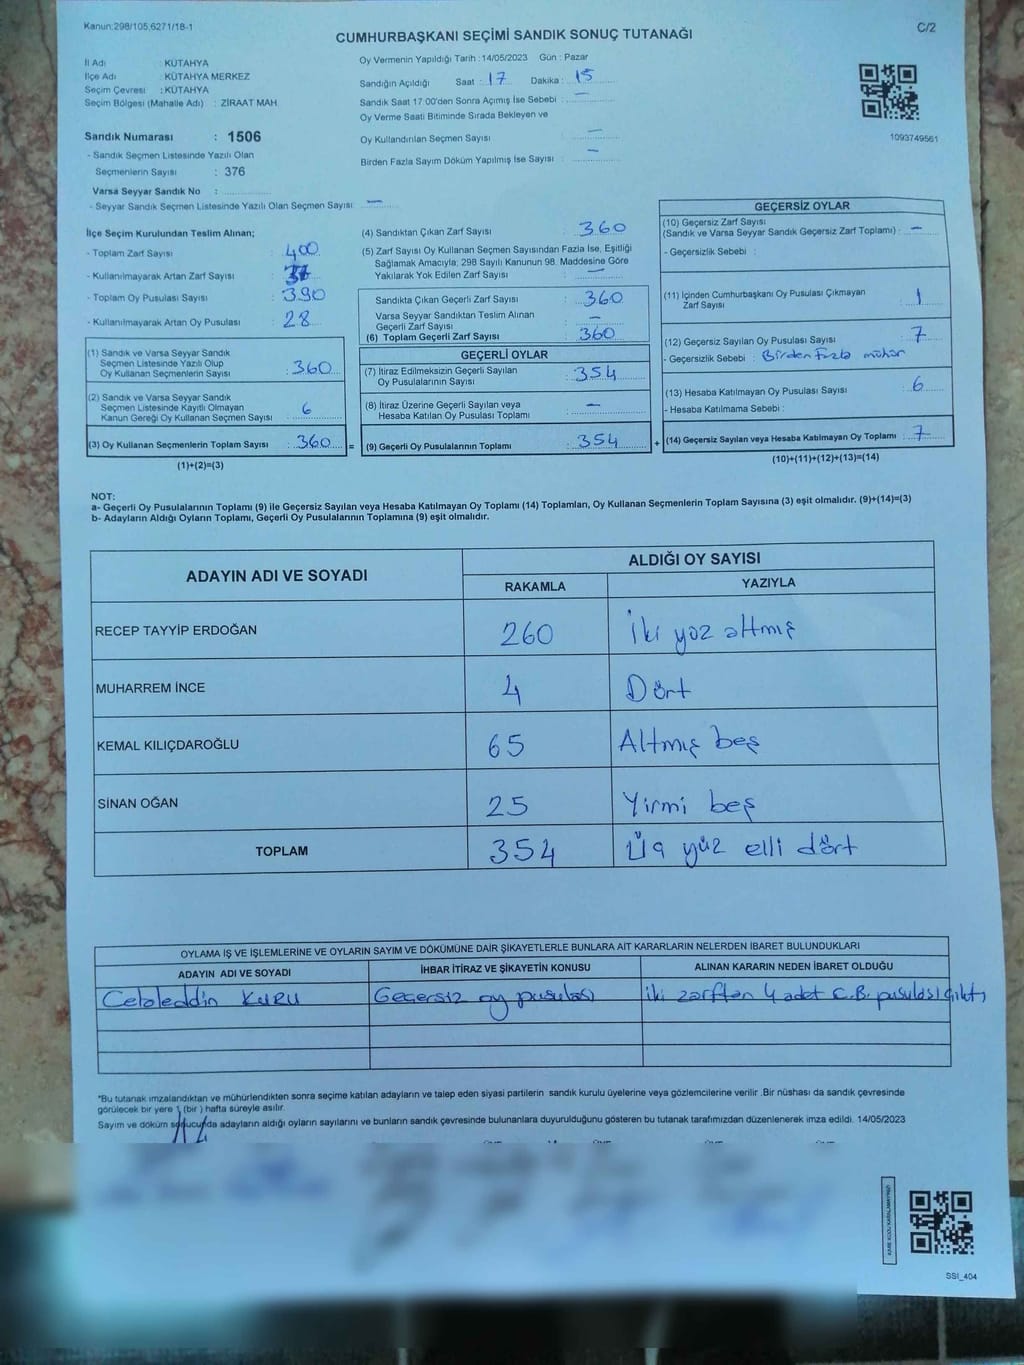 Kanun:298/105,6271/18-1
C/2
CUMHURBAŞKANI SEÇİMİ SANDIK SONUÇ TUTANAĞI
İl Adı : KÜTAHYA
İlçe Adı : KÜTAHYA MERKEZ
Seçim Çevresi : KÜTAHYA
Seçim Bölgesi (Mahalle Adı) : ZİRAAT MAH.
Sandık Numarası : 1506
- Sandık Seçmen Listesinde Yazılı Olan
Seçmenlerin Sayısı : 376
Varsa Seyyar Sandık No :
- Seyyar Sandık Seçmen Listesinde Yazılı Olan Seçmen Sayısı: —
Oy Vermenin Yapıldığı Tarih :14/05/2023 Gün : Pazar
Sandığın Açıldığı Saat : 17 Dakika : 15
Sandık Saat 17:00'den Sonra Açımış İse Sebebi : —
Oy Verme Saati Bitiminde Sırada Bekleyen ve
Oy Kullandırılan Seçmen Sayısı : —
Birden Fazla Sayım Döküm Yapılmış İse Sayısı : —
1093749561
İlçe Seçim Kurulundan Teslim Alınan;
- Toplam Zarf Sayısı : 400
- Kullanılmayarak Artan Zarf Sayısı :
- Toplam Oy Pusulası Sayısı : 390
- Kullanılmayarak Artan Oy Pusulası : 28
(1) Sandık ve Varsa Seyyar Sandık
Seçmen Listesinde Yazılı Olup
Oy Kullanan Seçmenlerin Sayısı : 360
(2) Sandık ve Varsa Seyyar Sandık
Seçmen Listesinde Kayıtlı Olmayan
Kanun Gereği Oy Kullanan Seçmen Sayısı : 6
(3) Oy Kullanan Seçmenlerin Toplam Sayısı : 360 =
(1)+(2)=(3)
(4) Sandıktan Çıkan Zarf Sayısı : 360
(5) Zarf Sayısı Oy Kullanan Seçmen Sayısından Fazla İse, Eşitliği
Sağlamak Amacıyla; 298 Sayılı Kanunun 98. Maddesine Göre
Yakılarak Yok Edilen Zarf Sayısı : —
Sandıkta Çıkan Geçerli Zarf Sayısı : 360
Varsa Seyyar Sandıktan Teslim Alınan
Geçerli Zarf Sayısı : —
(6) Toplam Geçerli Zarf Sayısı : 360
GEÇERLİ OYLAR
(7) İtiraz Edilmeksizin Geçerli Sayılan
Oy Pusulalarının Sayısı : 354
(8) İtiraz Üzerine Geçerli Sayılan veya
Hesaba Katılan Oy Pusulası Toplamı : —
(9) Geçerli Oy Pusulalarının Toplamı : 354 +
GEÇERSİZ OYLAR
(10) Geçersiz Zarf Sayısı
(Sandık ve Varsa Seyyar Sandık Geçersiz Zarf Toplamı) : —
- Geçersizlik Sebebi :
(11) İçinden Cumhurbaşkanı Oy Pusulası Çıkmayan
Zarf Sayısı : 1
(12) Geçersiz Sayılan Oy Pusulası Sayısı : 7
- Geçersizlik Sebebi : Birden Fazla mühür
(13) Hesaba Katılmayan Oy Pusulası Sayısı : 6
- Hesaba Katılmama Sebebi :
(14) Geçersiz Sayılan veya Hesaba Katılmayan Oy Toplamı : 7
(10)+(11)+(12)+(13)=(14)
NOT:
a- Geçerli Oy Pusulalarının Toplamı (9) ile Geçersiz Sayılan veya Hesaba Katılmayan Oy Toplamı (14) Toplamları, Oy Kullanan Seçmenlerin Toplam Sayısına (3) eşit olmalıdır. (9)+(14)=(3)
b- Adayların Aldığı Oyların Toplamı, Geçerli Oy Pusulalarının Toplamına (9) eşit olmalıdır.
ADAYIN ADI VE SOYADI
ALDIĞI OY SAYISI
RAKAMLA YAZIYLA
RECEP TAYYİP ERDOĞAN 260 İki yüz altmış
MUHARREM İNCE 4 Dört
KEMAL KILIÇDAROĞLU 65 Altmış beş
SİNAN OĞAN 25 Yirmi beş
TOPLAM 354 Üç yüz elli dört
OYLAMA İŞ VE İŞLEMLERİNE VE OYLARIN SAYIM VE DÖKÜMÜNE DAİR ŞİKAYETLERLE BUNLARA AİT KARARLARIN NELERDEN İBARET BULUNDUKLARI
ADAYIN ADI VE SOYADI İHBAR İTİRAZ VE ŞİKAYETİN KONUSU ALINAN KARARIN NEDEN İBARET OLDUĞU
Celaleddin KURU Geçersiz oy pusulası iki zarftan 4 adet C.B. pusulası çıktı
*Bu tutanak imzalandıktan ve mühürlendikten sonra seçime katılan adayların ve talep eden siyasi partilerin sandık kurulu üyelerine veya gözlemcilerine verilir .Bir nüshası da sandık çevresinde
görülecek bir yere 1 (bir ) hafta süreyle asılır.
Sayım ve döküm sonucunda adayların aldığı oyların sayılarını ve bunların sandık çevresinde bulunanlara duyurulduğunu gösteren bu tutanak tarafımızdan düzenlenerek imza edildi. 14/05/2023
SSİ_404